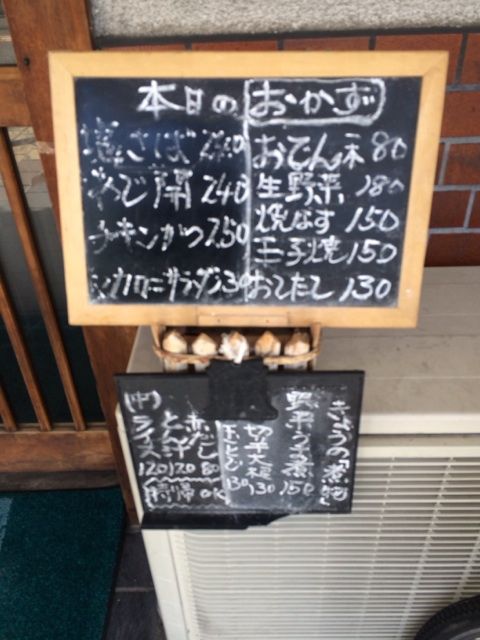 本日のおかず
さば
開 240
チキンかつ 250
マカロニサラダ 130
おでん一本 80
生野菜 180
焼なす 150
玉子焼 150
おしたし 130
きょうの「煮物」
野菜うま煮 150
切干大根 130
玉とじ 130
赤だし 80
とん汁 120
(中)ライス 120
持帰OK